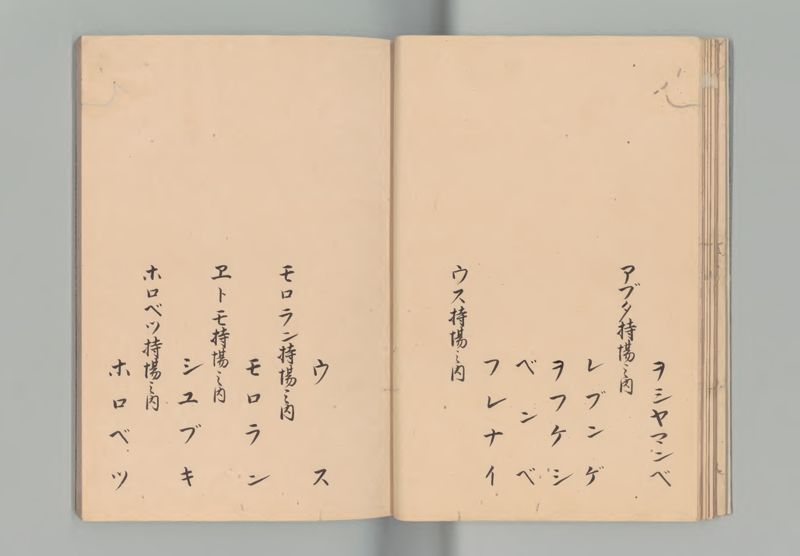 ヲシヤマンベ
アブタ持場之内
レブンゲ
ヲフケシ
ベンベ
フレナイ
ウス持場之内
ウス
モロラン持場之内
モロラン
ヱトモ持場之内
シユブキ
ホロベツ持場之内
ホロベツ